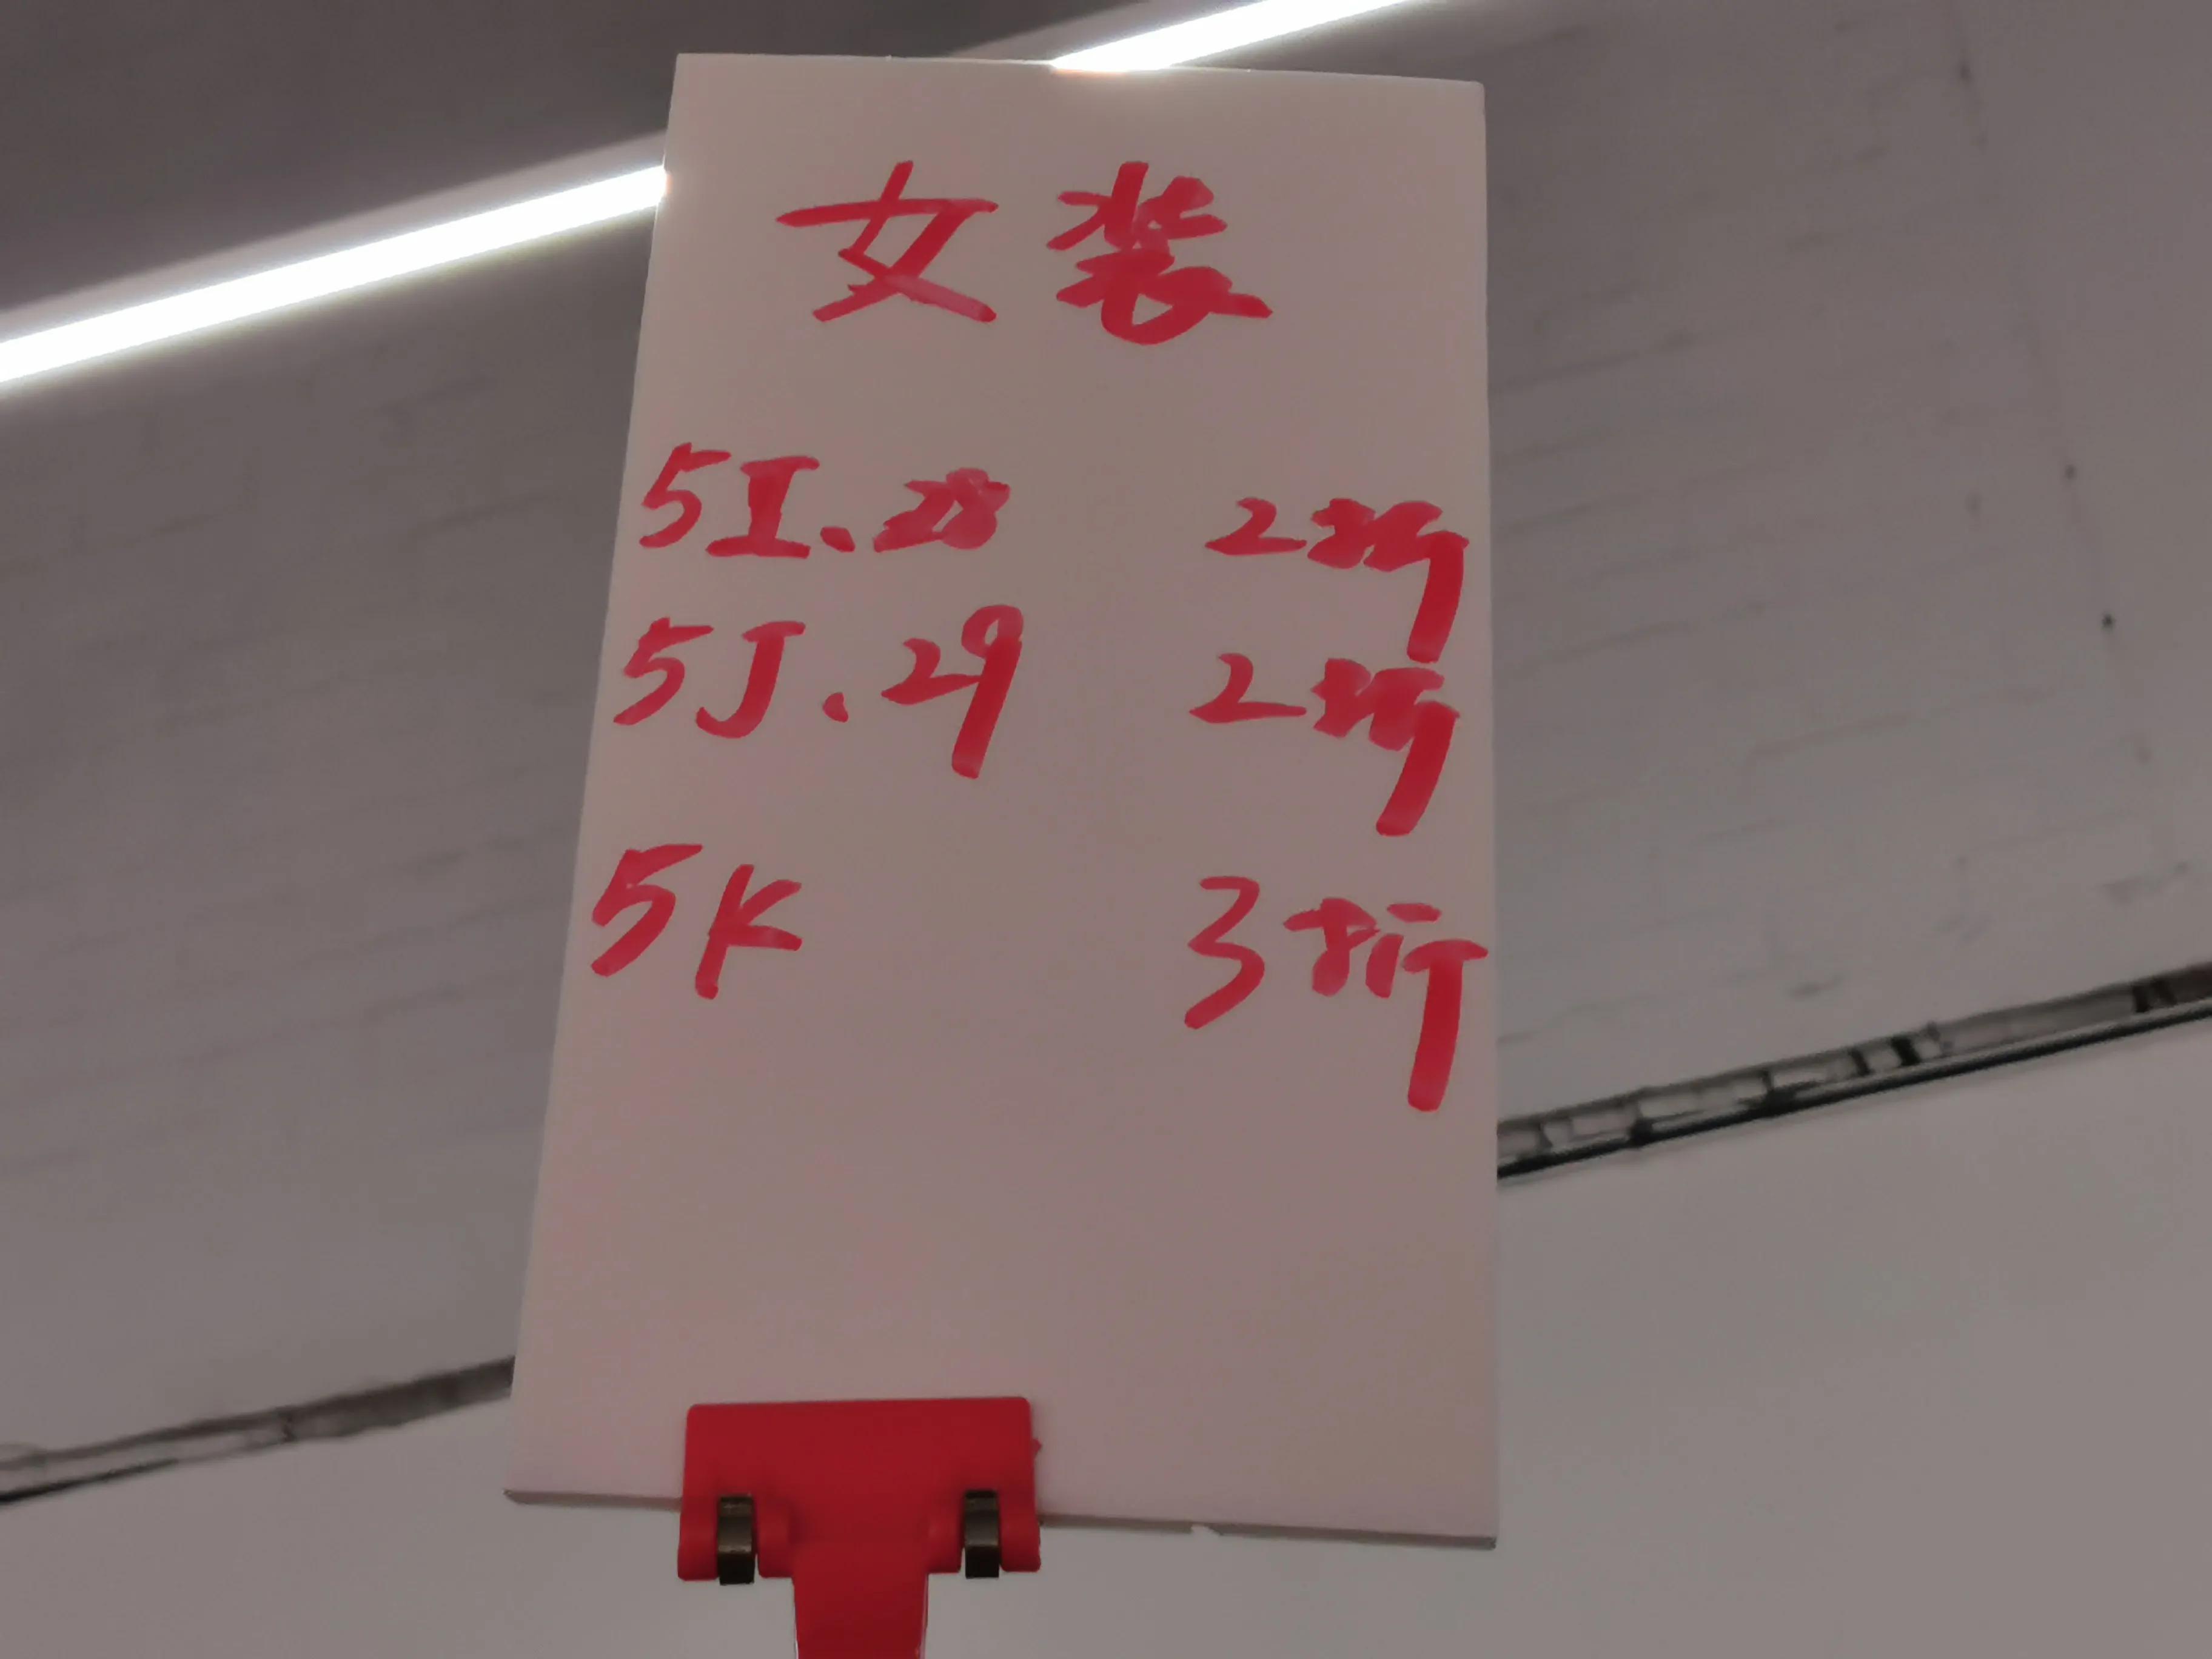 女装
5I.28 2折
5J.29 2折
5K 3折